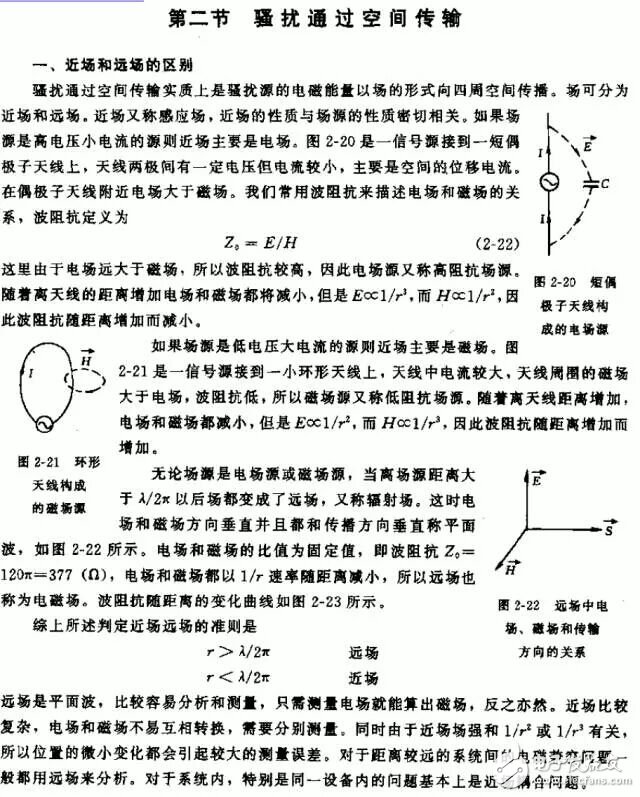 第二节 骚扰通过空间传输
一、近场和远场的区别
骚扰通过空间传输实质上是骚扰源的电磁能量以场的形式向四周空间传播。场可分为
近场和远场。近场又称感应场，近场的性质与场源的性质密切相关。如果场
源是高电压小电流的源则近场主要是电场。图 2-20 是一信号源接到一短偶
极子天线上，天线两极间有一定电压但电流较小，主要是空间的位移电流。
在偶极子天线附近电场大于磁场。我们常用波阻抗来描述电场和磁场的关
系，波阻抗定义为
Z₀ = E/H (2-22)
这里由于电场远大于磁场，所以波阻抗较高，因此电场源又称高阻抗场源。
随着离天线的距离增加电场和磁场都将减小，但是 E∝1/r³，而 H∝1/r²，因
此波阻抗随距离增加而减小。
I
E
C
I
图 2-20 短偶
极子天线构
成的电场源
如果场源是低电压大电流的源则近场主要是磁场。图
2-21 是一信号源接到一小环形天线上，天线中电流较大，天线周围的磁场
大于电场，波阻抗低，所以磁场源又称低阻抗场源。随着离天线距离增加，
电场和磁场都减小，但是 E∝1/r²，而 H∝1/r³，因此波阻抗随距离增加而
增加。
I
H
图 2-21 环形
天线构成
的磁场源
无论场源是电场源或磁场源，当离场源距离大
于 λ/2π 以后场都变成了远场，又称辐射场。这时电
场和磁场方向垂直并且都和传播方向垂直称平面
波，如图 2-22 所示。电场和磁场的比值为固定值，即波阻抗 Z₀=
120π=377（Ω），电场和磁场都以 1/r 速率随距离减小，所以远场也
称为电磁场。波阻抗随距离的变化曲线如图 2-23 所示。
E
S
H
图 2-22 远场中电
场、磁场和传输
方向的关系
综上所述判定近场远场的准则是
r > λ/2π 远场
r < λ/2π 近场
远场是平面波，比较容易分析和测量，只需测量电场就能算出磁场，反之亦然。近场比较
复杂，电场和磁场不易互相转换，需要分别测量。同时由于近场场强和 1/r² 或 1/r³ 有关，
所以位置的微小变化都会引起较大的测量误差。对于距离较远的系统间的电磁 问题
般都用远场来分析。对于系统内，特别是同一设备内的问题基本上是近 耦合问题。